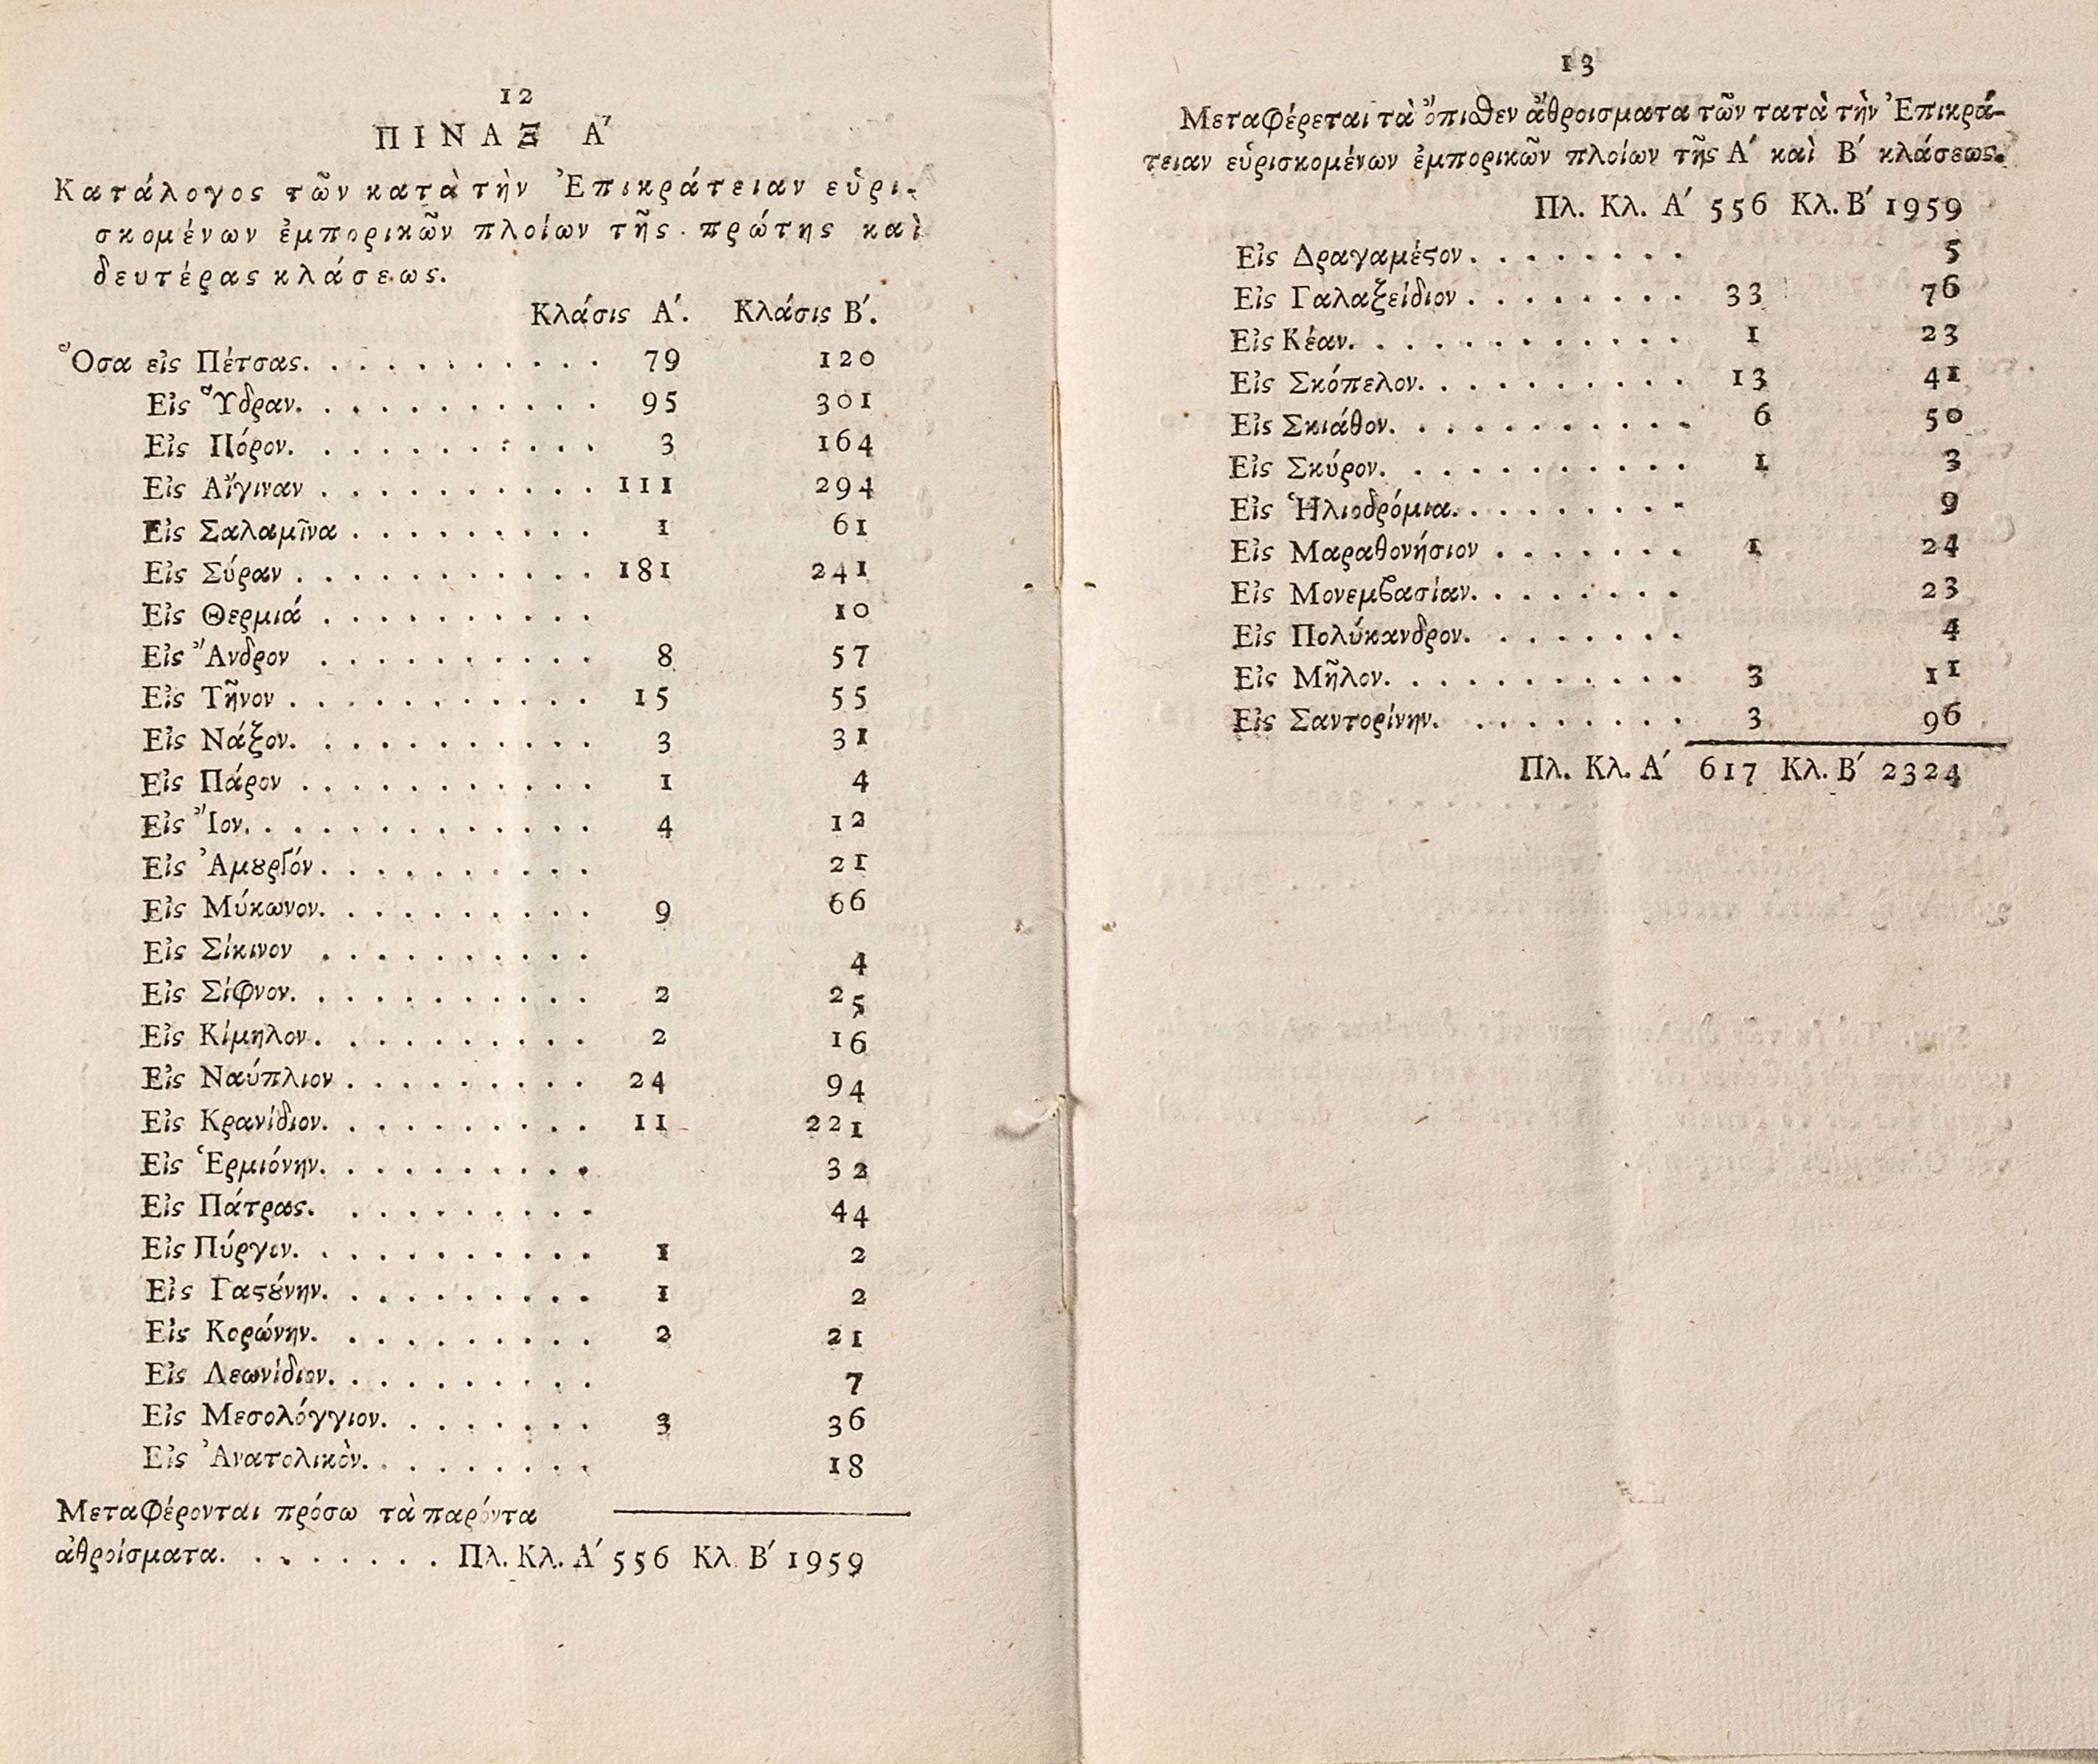 12
ΠΙΝΑΞ Α'
Κατάλογος τῶν κατὰ τὴν Ἐπικράτειαν εὑρι-
σκομένων ἐμπορικῶν πλοίων τῆς πρώτης καὶ
δευτέρας κλάσεως.
Κλάσις Α'. Κλάσις Β'.
Ὅσα εἰς Πέτσας. . . . . . . . . . . 79 120
Εἰς Ὕδραν. . . . . . . . . . . 95 301
Εἰς Πόρον. . . . . . . . . . . 3 164
Εἰς Αἴγιναν . . . . . . . . . . 111 294
Εἰς Σαλαμῖνα . . . . . . . . . 1 61
Εἰς Σύραν . . . . . . . . . . . 181 241
Εἰς Θερμιά . . . . . . . . . . 10
Εἰς Ἄνδρον . . . . . . . . . . 8 57
Εἰς Τῆνον . . . . . . . . . . . 15 55
Εἰς Νάξον. . . . . . . . . . . 3 31
Εἰς Πάρον . . . . . . . . . . . 1 4
Εἰς Ἴον. . . . . . . . . . . . . 4 12
Εἰς Ἀμȣργόν. . . . . . . . . . 21
Εἰς Μύκωνον. . . . . . . . . . 9 66
Εἰς Σίκινον . . . . . . . . . . 4
Εἰς Σίφνον. . . . . . . . . . . 2 25
Εἰς Κίμηλον. . . . . . . . . . 2 16
Εἰς Ναύπλιον . . . . . . . . . 24 94
Εἰς Κρανίδιον. . . . . . . . . . 11 221
Εἰς Ἑρμιόνην. . . . . . . . . . 32
Εἰς Πάτρας. . . . . . . . . . 44
Εἰς Πύργον. . . . . . . . . . . 1 2
Εἰς Γαςȣ́νην. . . . . . . . . . 1 2
Εἰς Κορώνην. . . . . . . . . . 2 21
Εἰς Λεωνίδιον. . . . . . . . . . 7
Εἰς Μεσολόγγιον. . . . . . . . 3 36
Εἰς Ἀνατολικὸν. . . . . . . . . 18
Μεταφέρονται πρόσω τὰ παρόντα
ἀθροίσματα. . . . . . . . Πλ. Κλ. Α' 556 Κλ Β' 1959
13
Μεταφέρεται τὰ ὄπιθεν ἀθροισματα τῶν τατὰ τὴν Ἐπικρά-
τειαν εὑρισκομένων ἐμπορικῶν πλοίων τῆς Α' καὶ Β' κλάσεως.
Πλ. Κλ. Α' 556 Κλ. Β' 1959
Εἰς Δραγαμέςον. . . . . . . . . 5
Εἰς Γαλαξείδιον . . . . . . . . 33 76
Εἰς Κέαν. . . . . . . . . . . . 1 23
Εἰς Σκόπελον. . . . . . . . . . 13 41
Εἰς Σκιάθον. . . . . . . . . . . 6 50
Εἰς Σκύρον. . . . . . . . . . . 1 3
Εἰς Ἡλιοδρόμια. . . . . . . . . 9
Εἰς Μαραθονήσιον . . . . . . . 1 24
Εἰς Μονεμβασίαν. . . . . . . . 23
Εἰς Πολύκανδρον. . . . . . . . 4
Εἰς Μῆλον. . . . . . . . . . . 3 11
Εἰς Σαντορίνην. . . . . . . . . 3 96
Πλ. Κλ. Α' 617 Κλ. Β' 2324